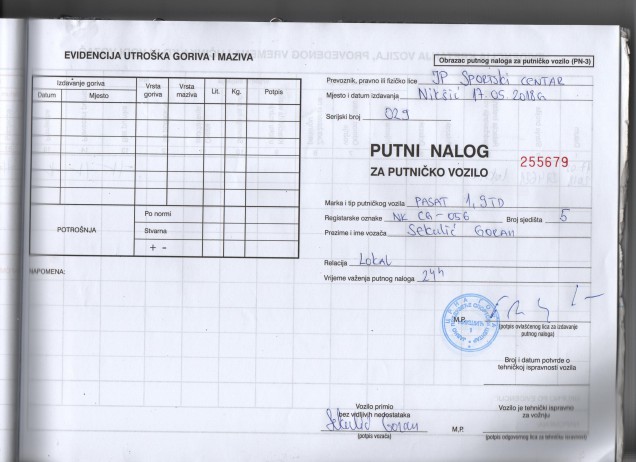 EVIDENCIJA UTROŠKA GORIVA I MAZIVA
Izdavanje goriva
Datum Mjesto Vrsta goriva Vrsta maziva Lit. Kg. Potpis
POTROŠNJA
Po normi
Stvarna
+ -
NAPOMENA:
Obrazac putnog naloga za putničko vozilo (PN-3)
Prevoznik, pravno ili fizičko lice JP SPORTSKI CENTAR
Mjesto i datum izdavanja Nikšić 17.05.2018G
Serijski broj 029
PUTNI NALOG
ZA PUTNIČKO VOZILO
255679
Marka i tip putničkog vozila PASAT 1,9TD
Registarske oznake NK CG-056 Broj sjedišta 5
Prezime i ime vozača Sekulić GORAN
Relacija Lokal
Vrijeme važenja putnog naloga 24h
M.P.
(potpis ovlašćenog lica za izdavanje
putnog naloga)
Broj i datum potvrde o
tehničkoj ispravnosti vozila
Vozilo primio
bez vidljivih nedostataka
Sekulić Goran
(potpis vozača)
Vozilo je tehnički ispravno
za vožnju
M.P.
(potpis odgovornog lica za tehničku ispravnost)